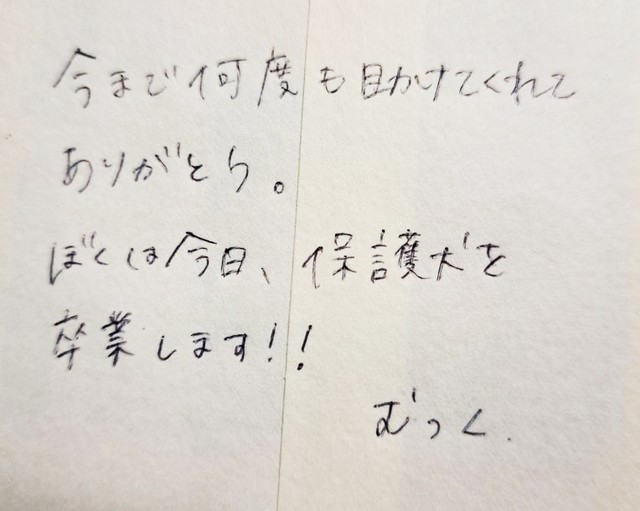 今まで何度も助けてくれて
ありがとう。
ぼくは今日、保護犬を
卒業します!!
むっく.